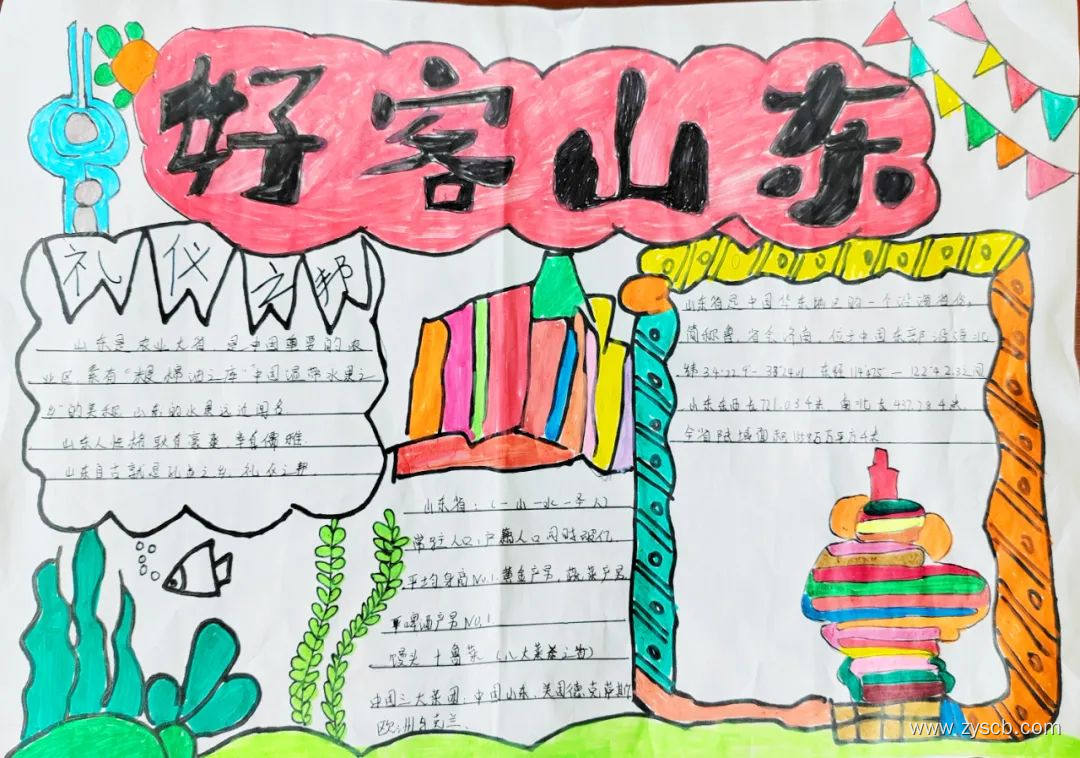 好客山东
礼仪之邦
山东是农业大省,是中国重要的农
业区,素有"粮棉油之库"中国温带水果之
乡"的美称,山东的水果远近闻名
山东人性格耿直豪爽
山东自古就是孔孟之乡,礼仪之邦
山东省:(一山一水一圣人)
常驻人口,户籍人口同时破亿,
平均身高NO.1.黄金产另,蔬菜产另,
啤酒产另NO.1
馒头 十鲁菜(八大菜
中国三大菜园:中国山东、美国德克萨斯
欧洲乌克兰.
山东省是中国华东地区的一个沿海省份。
简称鲁,省会济南,位于中国东部沿海北
纬34°22.9— 东经 — 122°42.3间
山东东西长721.03千米 南北长437.28千米.
全省陆域面积 万平方千米
www.zyscb.com